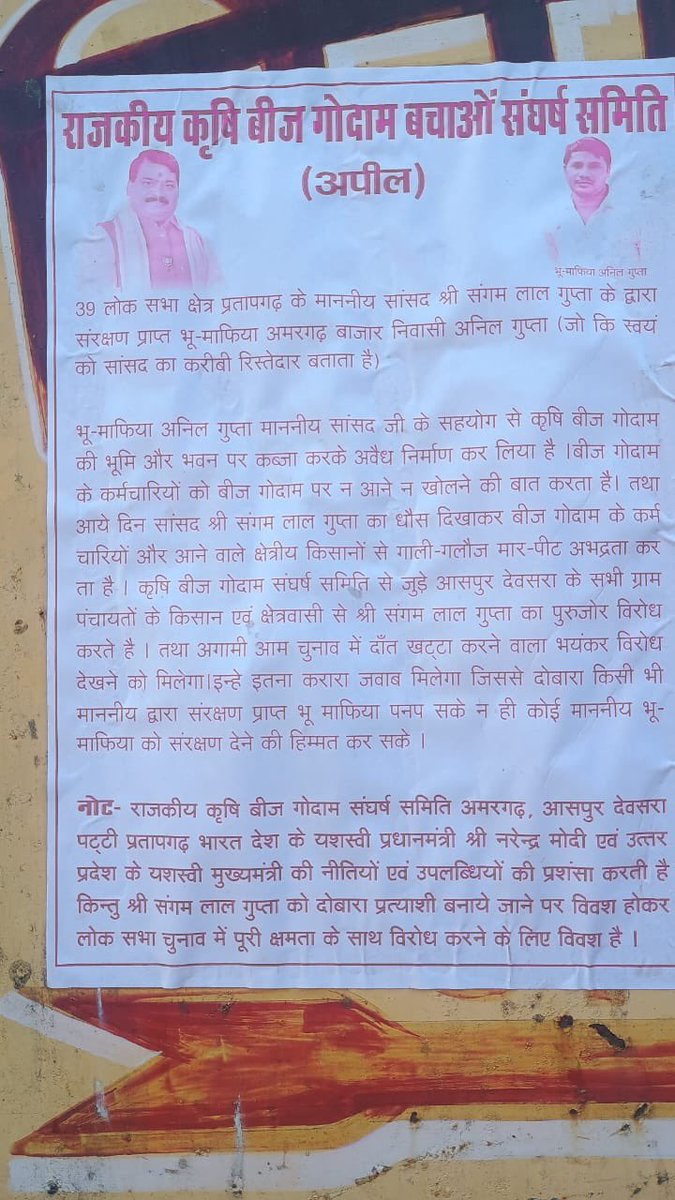 राजकीय कृषि बीज गोदाम बचाओं संघर्ष समिति
(अपील)
भू-माफिया अनिल गुप्ता
39 लोक सभा क्षेत्र प्रतापगढ़ के माननीय सांसद श्री संगम लाल गुप्ता के द्वारा
संरक्षण प्राप्त भू-माफिया अमरगढ़ बाजार निवासी अनिल गुप्ता (जो कि स्वयं
को सांसद का करीबी रिस्तेदार बताता है)
भू-माफिया अनिल गुप्ता माननीय सांसद जी के सहयोग से कृषि बीज गोदाम
की भूमि और भवन पर कब्जा करके अवैध निर्माण कर लिया है ।बीज गोदाम
के कर्मचारियों को बीज गोदाम पर न आने न खोलने की बात करता है। तथा
आये दिन सांसद श्री संगम लाल गुप्ता का धौस दिखाकर बीज गोदाम के कर्म
चारियों और आने वाले क्षेत्रीय किसानों से गाली-गलौज मार-पीट अभद्रता कर
ता है । कृषि बीज गोदाम संघर्ष समिति से जुड़े आसपुर देवसरा के सभी ग्राम
पंचायतों के किसान एवं क्षेत्रवासी से श्री संगम लाल गुप्ता का पुरुजोर विरोध
करते है । तथा अगामी आम चुनाव में दाँत खट्टा करने वाला भयंकर विरोध
देखने को मिलेगा।इन्हे इतना करारा जवाब मिलेगा जिससे दोबारा किसी भी
माननीय द्वारा संरक्षण प्राप्त भू माफिया पनप सके न ही कोई माननीय भू-
माफिया को संरक्षण देने की हिम्मत कर सके ।
नोट- राजकीय कृषि बीज गोदाम संघर्ष समिति अमरगढ़, आसपुर देवसरा
पट्टी प्रतापगढ़ भारत देश के यशस्वी प्रधानमंत्री श्री नरेन्द्र मोदी एवं उत्तर
प्रदेश के यशस्वी मुख्यमंत्री की नीतियों एवं उपलब्धियों की प्रशंसा करती है
किन्तु श्री संगम लाल गुप्ता को दोबारा प्रत्याशी बनाये जाने पर विवश होकर
लोक सभा चुनाव में पूरी क्षमता के साथ विरोध करने के लिए विवश है ।